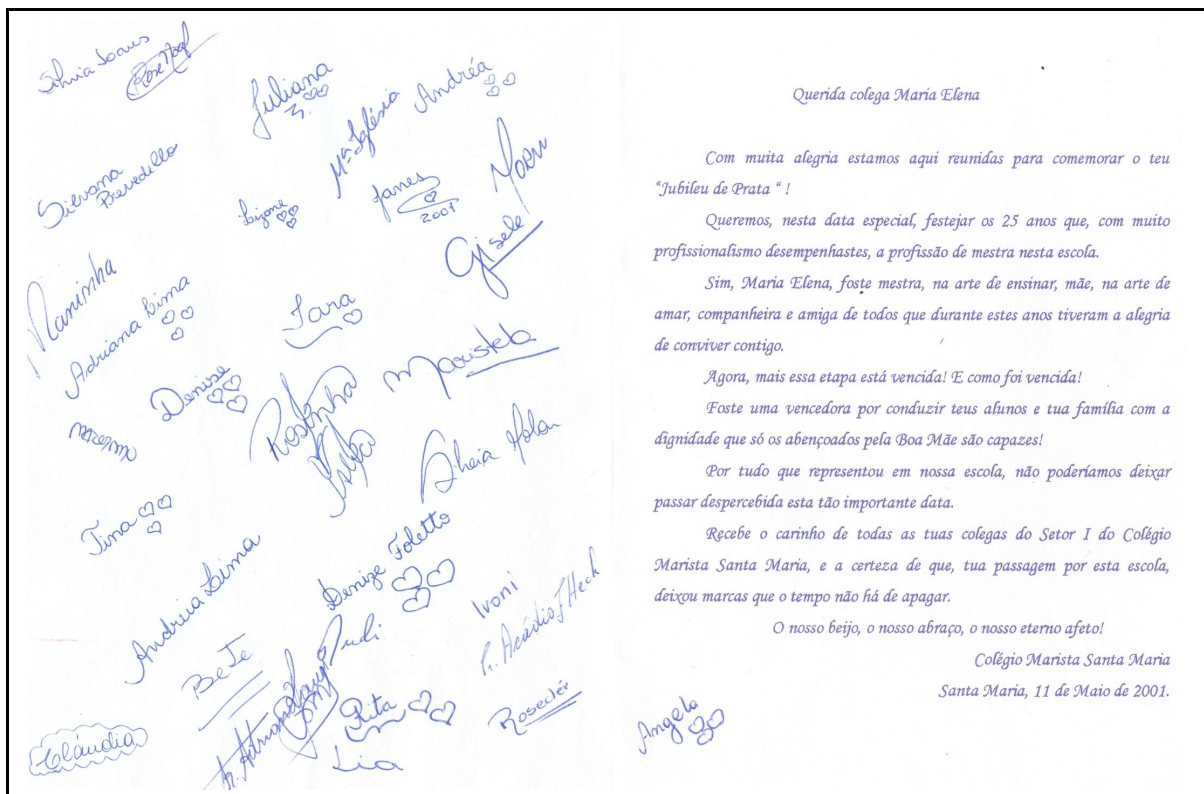 Silvia Soares
Juliana
Andréa
Mª Iglésia
Silvana
Brevedello
Lizone
Janes
2001
Gisele
Naninha
Adriana Lima
Iara
Denise
Maristela
Rosinha
Tina
Andreia Lima
Denize Foletto
Ivoni
Bete
Rita
Lia
Roseclér
Cláudia
Querida colega Maria Elena
Com muita alegria estamos aqui reunidas para comemorar o teu
"Jubileu de Prata " !
Queremos, nesta data especial, festejar os 25 anos que, com muito
profissionalismo desempenhastes, a profissão de mestra nesta escola.
Sim, Maria Elena, foste mestra, na arte de ensinar, mãe, na arte de
amar, companheira e amiga de todos que durante estes anos tiveram a alegria
de conviver contigo.
Agora, mais essa etapa está vencida! E como foi vencida!
Foste uma vencedora por conduzir teus alunos e tua família com a
dignidade que só os abençoados pela Boa Mãe são capazes!
Por tudo que representou em nossa escola, não poderíamos deixar
passar despercebida esta tão importante data.
Recebe o carinho de todas as tuas colegas do Setor I do Colégio
Marista Santa Maria, e a certeza de que, tua passagem por esta escola,
deixou marcas que o tempo não há de apagar.
O nosso beijo, o nosso abraço, o nosso eterno afeto!
Colégio Marista Santa Maria
Santa Maria, 11 de Maio de 2001.
Angela